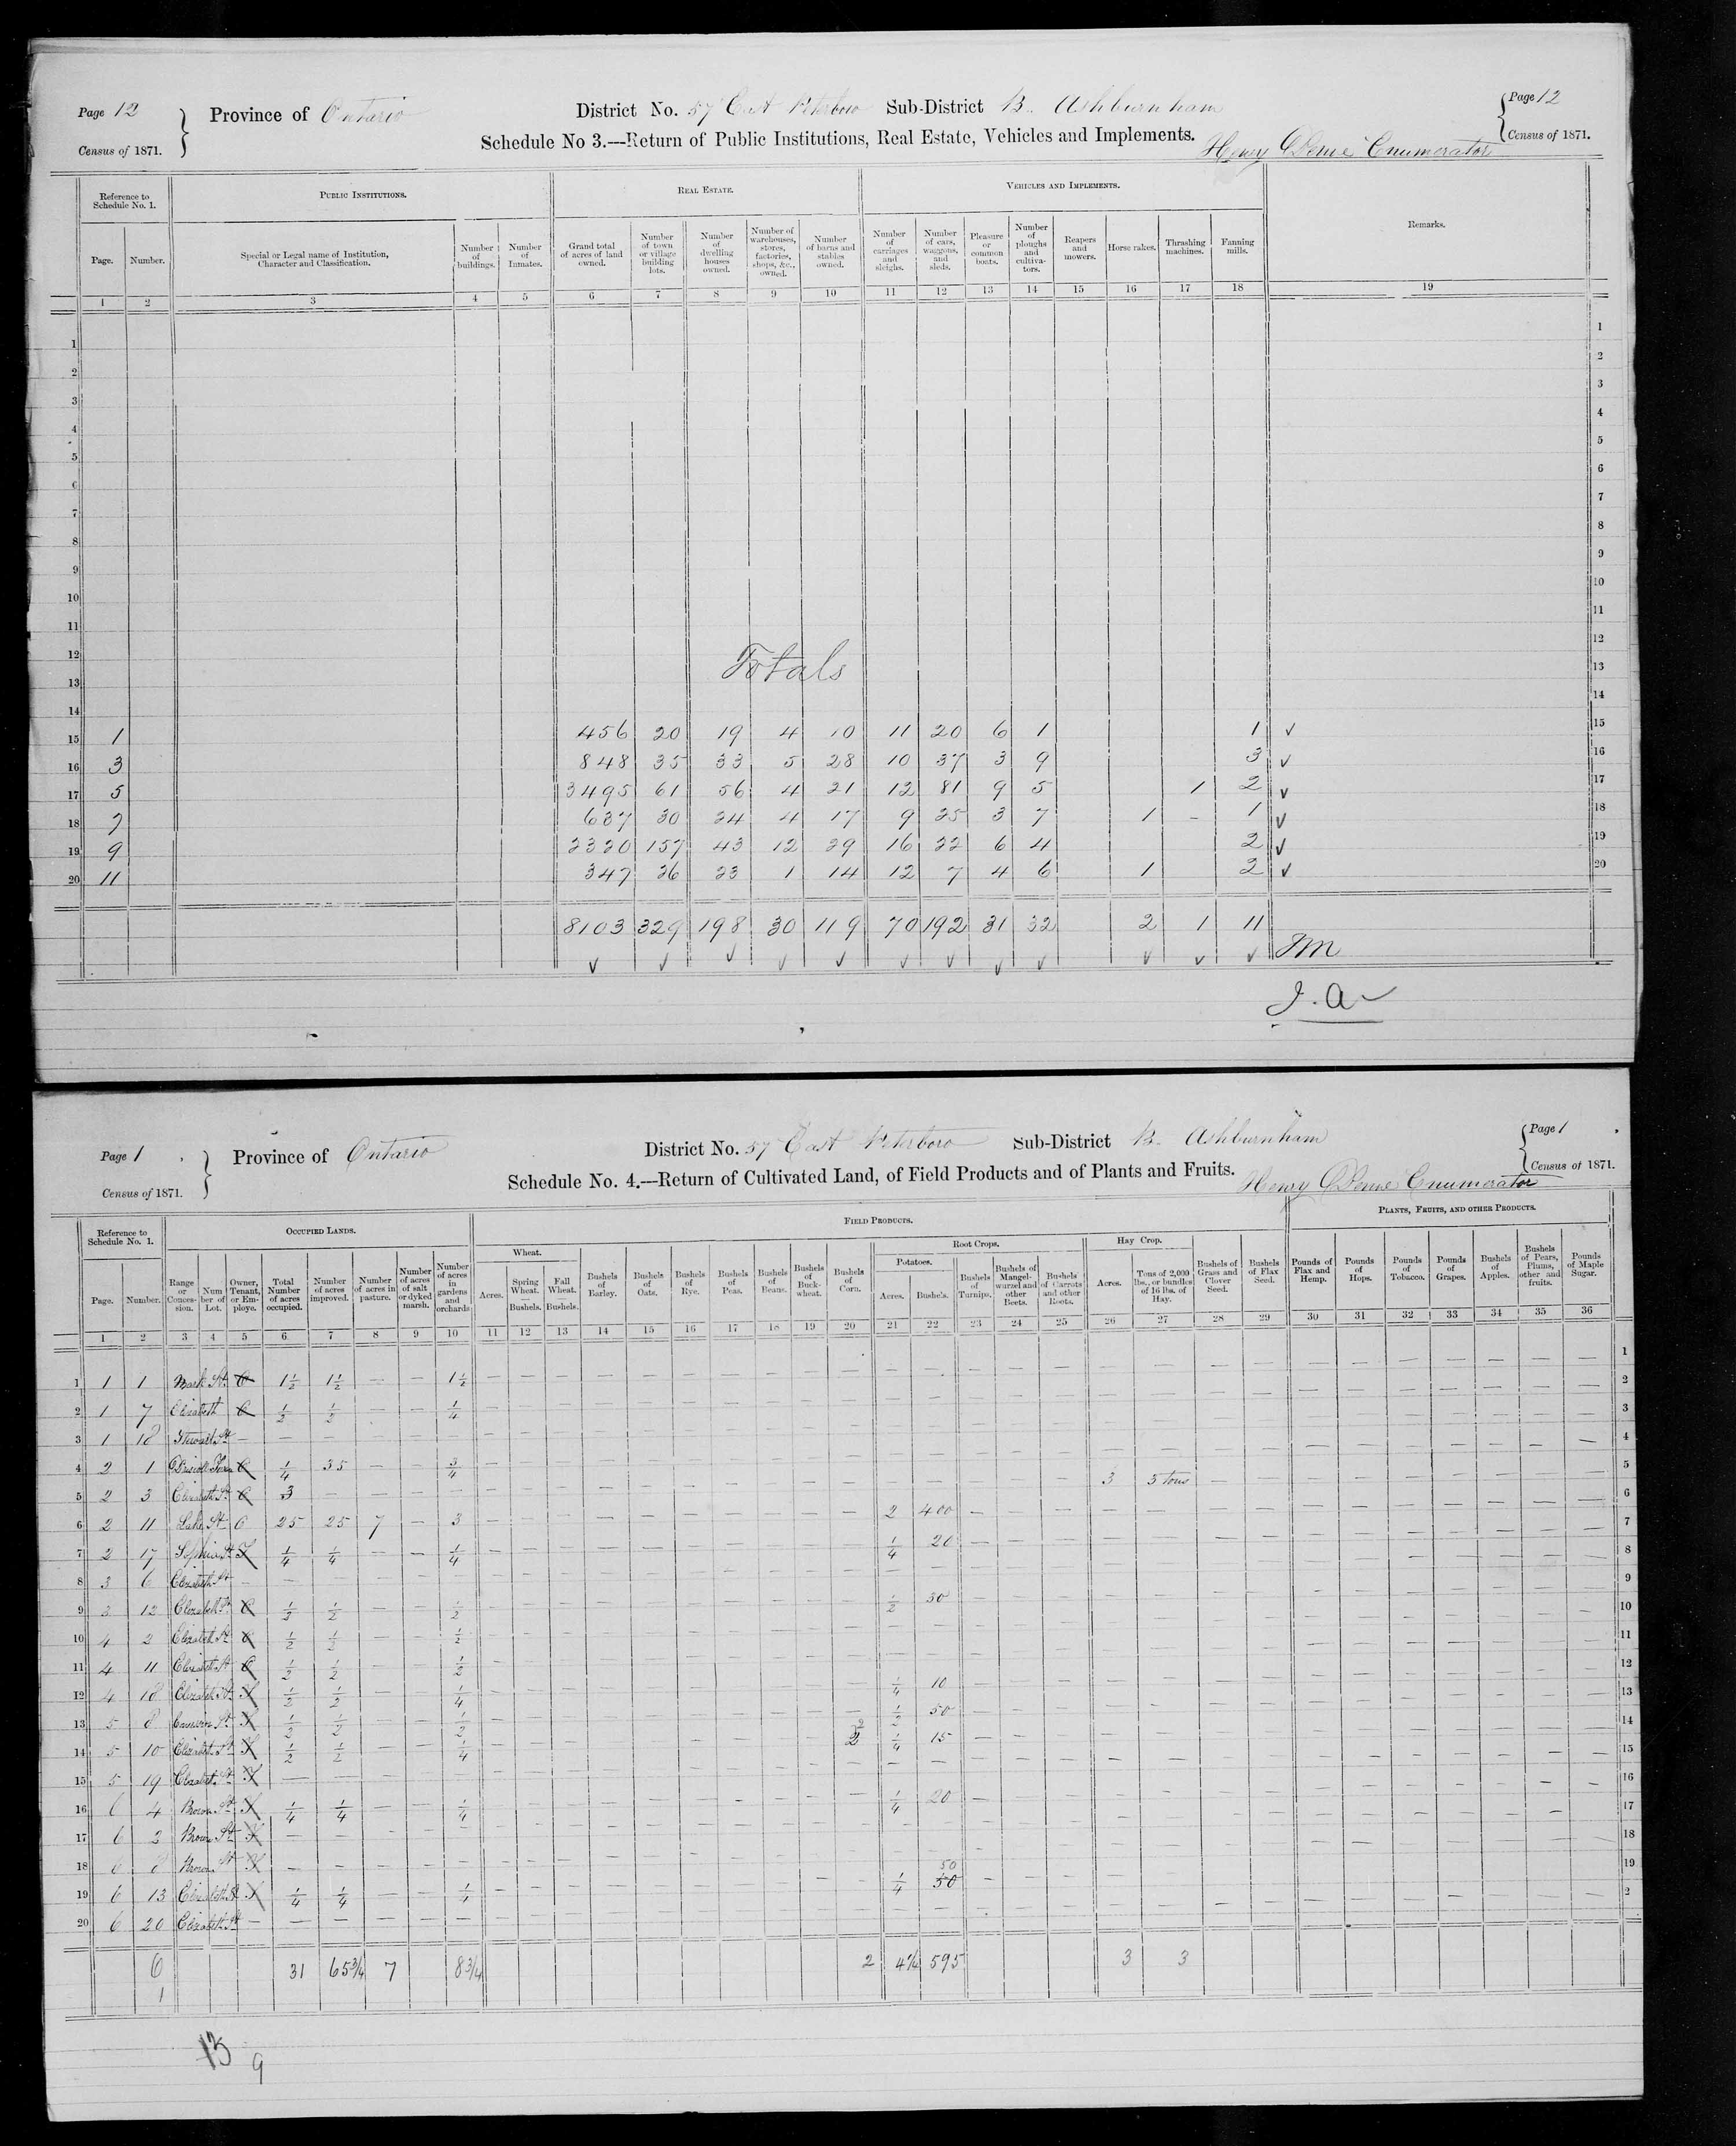 Page 12
Census of 1871.
Province of Ontario
District No. 57 East Peterboro Sub-District B. Ashburnham
Page 12
Census of 1871.
Schedule No 3.---Return of Public Institutions, Real Estate, Vehicles and Implements.
Henry Enumerator
Reference to Schedule No. 1.
PUBLIC INSTITUTIONS.
REAL ESTATE.
VEHICLES AND IMPLEMENTS.
Remarks.
Page. Number. Special or Legal name of Institution, Character and Classification. Number of buildings. Number of Inmates. Grand total of acres of land owned. Number of town or village building lots. Number of dwelling houses owned. Number of warehouses, stores, factories, shops, &c., owned. Number of barns and stables owned. Number of carriages and sleighs. Number of cars, waggons, and sleds. Pleasure or common boats. Number of ploughs and cultiva-tors. Reapers and mowers. Horse rakes. Thrashing machines. Fanning mills.
1 2 3 4 5 6 7 8 9 10 11 12 13 14 15 16 17 18 19
1 1
2 2
3 3
4 4
5 5
6 6
7 7
8 8
9 9
10 10
11 11
12 12
Totals
13 13
14 14
15 1 456 20 19 4 10 11 20 6 1 1 ✓ 15
16 3 848 35 33 5 28 10 37 3 9 3 ✓ 16
17 5 3495 61 56 4 21 12 81 9 5 1 2 ✓ 17
18 7 637 30 24 4 17 9 25 3 7 1 – 1 ✓ 18
19 9 2320 157 43 12 29 16 22 6 4 2 ✓ 19
20 11 347 26 23 1 14 12 7 4 6 1 2 ✓ 20
8103 329 198 30 119 70 192 31 32 2 1 11
✓ ✓ ✓ ✓ ✓ ✓ ✓ ✓ ✓ ✓ ✓ ✓
J.a
Page 1
Census of 1871.
Province of Ontario
District No. 57 East Peterboro Sub-District B. Ashburnham
Page 1
Census of 1871.
Schedule No. 4.---Return of Cultivated Land, of Field Products and of Plants and Fruits.
Henry Enumerator
Reference to Schedule No. 1.
OCCUPIED LANDS.
FIELD PRODUCTS.
PLANTS, FRUITS, AND OTHER PRODUCTS.
Wheat.
Root Crops.
Potatoes.
Hay Crop.
Page. Number. Range or Conces-sion. Num ber of Lot. Owner, Tenant, or Em-ploye. Total Number of acres occupied. Number of acres improved. Number of acres in pasture. Number of acres of salt or dyked marsh. Number of acres in gardens and orchards Acres. Spring Wheat. Bushels. Fall Wheat. Bushels. Bushels of Barley. Bushels of Oats. Bushels of Rye. Bushels of Peas. Bushels of Beans. Bushels of Buck-wheat. Bushels of Corn. Acres. Bushels. Bushels of Turnips. Bushels of Mangel-wurzel and other Beets. Bushels of Carrots and other Roots. Acres. Tons of 2,000 lbs., or bundles of 16 lbs. of Hay. Bushels of Grass and Clover Seed. Bushels of Flax Seed. Pounds of Flax and Hemp. Pounds of Hops. Pounds of Tobacco. Pounds of Grapes. Bushels of Apples. Bushels of Pears, Plums, other and fruits. Pounds of Maple Sugar.
1 2 3 4 5 6 7 8 9 10 11 12 13 14 15 16 17 18 19 20 21 22 23 24 25 26 27 28 29 30 31 32 33 34 35 36
1 1 1 Mark St. O 1½ 1½ 1½
2 1 7 Elizabeth O ½ ½ ¼
3 1 18 Stewart St
4 2 1 O ¼ 35 ¾
5 2 3 Elizabeth St. O 3 3 5 tons
6 2 11 Lake St O 25 25 7 3 2 400
7 2 17 Sophia St T ¼ ¼ ¼ ¼ 20
8 3 6 Elizabeth St
9 3 12 Elizabeth St. O ½ ½ ½ ½ 30
10 4 2 Elizabeth St. O ½ ½ ½
11 4 11 Elizabeth St O ½ ½ ½
12 4 18 Elizabeth St. T ½ ½ ¼ ¼ 10
13 5 8 St T ½ ½ ½ ½ 50
14 5 10 Elizabeth St T ½ ½ ¼ 2 ¼ 15
15 5 19 Elizabeth St T
16 6 4 Brown St. T ¼ ¼ ¼ ¼ 20
17 6 3 Brown St. T
18 6 8 Brown St T
19 6 13 Elizabeth St T ¼ ¼ ¼ ¼ 50
20 6 20 Elizabeth St
6 31 65¾ 7 8¾ 2 4¼ 595 3 3
1
13
9